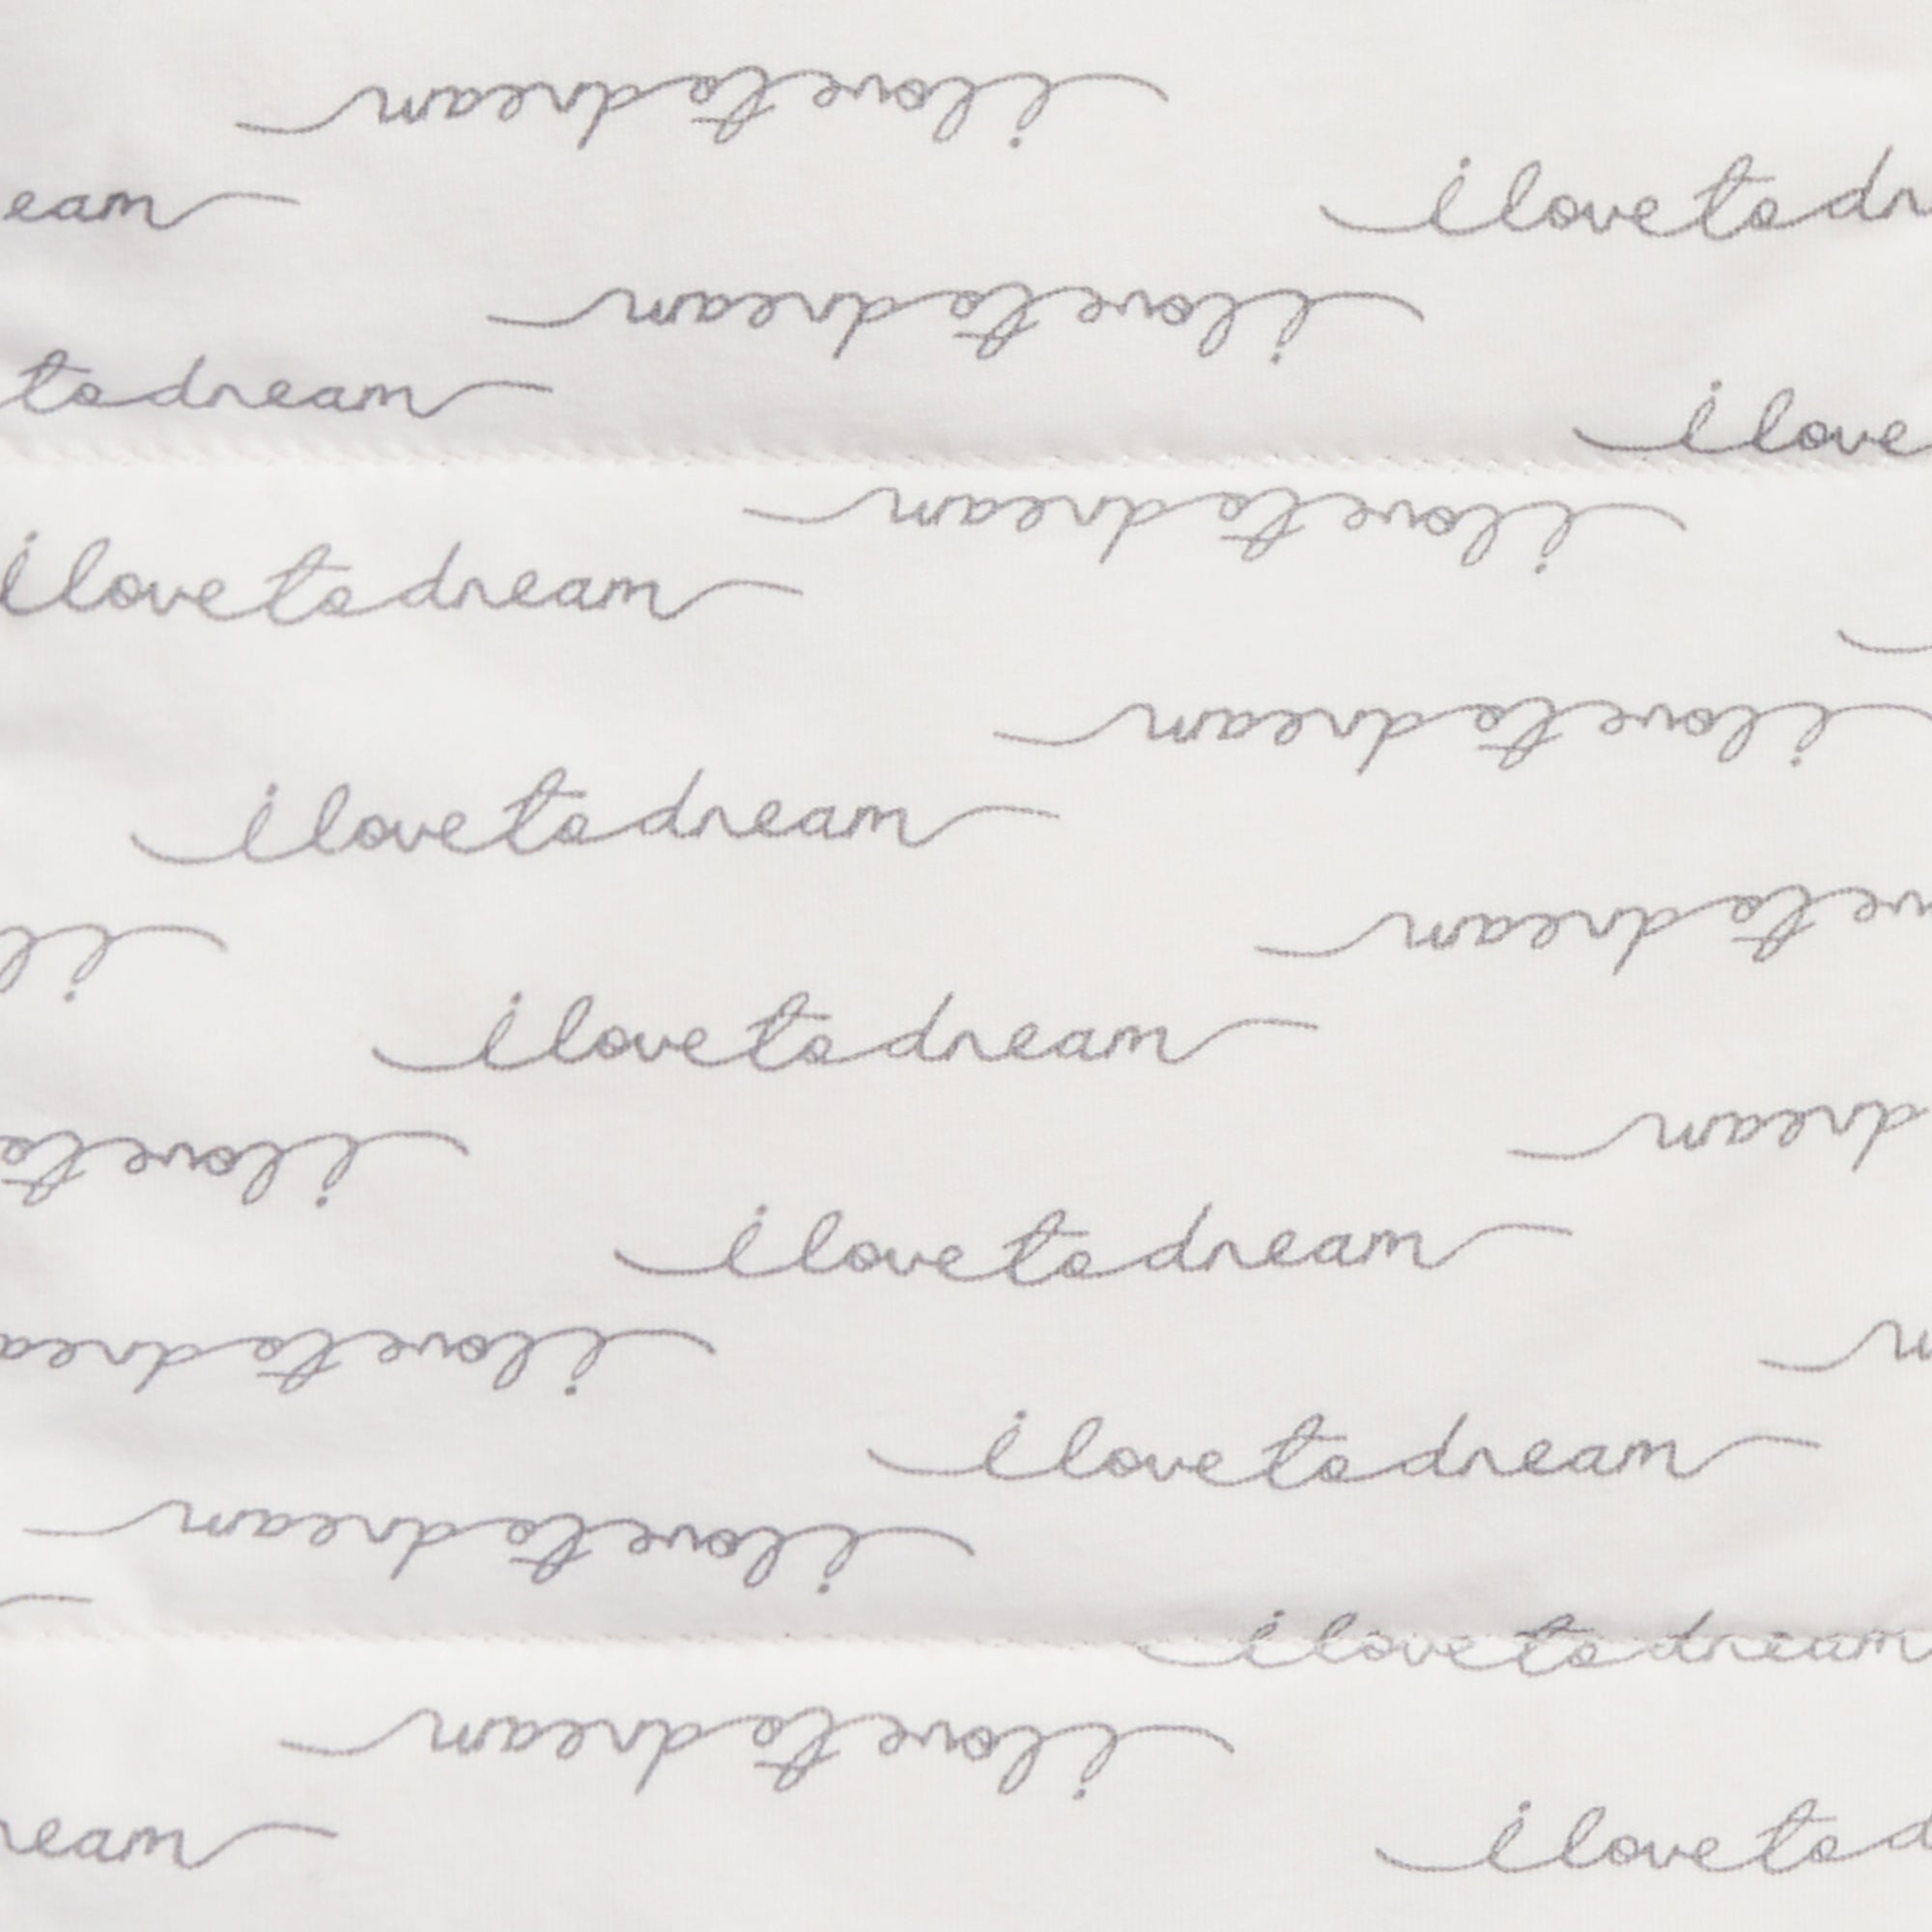 i love to dream
eam
i love to dr
i love to dream
to dream
i love
i love to dream
i love to dream
i love to dream
i love to dream
ve to dream
i l
i love to dream
dream
i love to
i love to dream
m
i love to drea
i love to dream
i love to dream
i love to dream
i love to dream
ream
i love to d